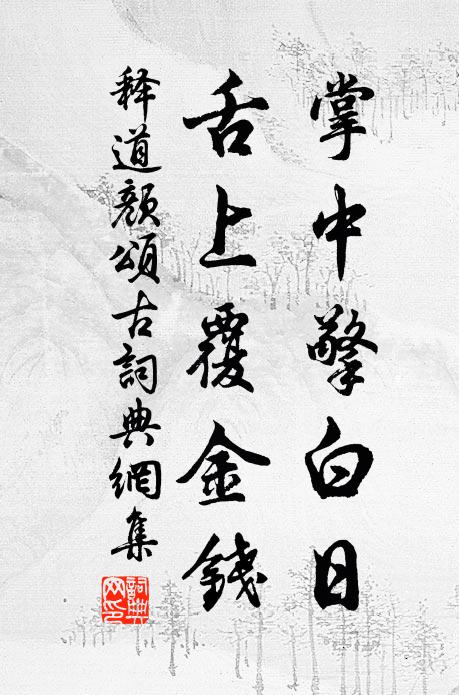 掌中擎白日
舌上覆金錢
释道颜頌古詞典網集
詞典